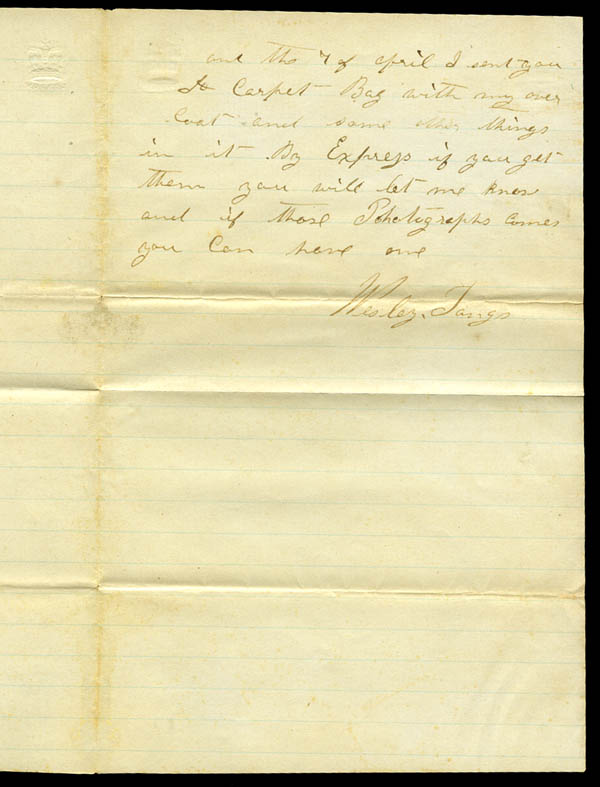 and the 7 of april I sent you
Carpet Bag with my over
Coat and some other things
in it By Express if you get
them you will let me know
and if those Photographs comes
you can have one
Wesley. Tangs